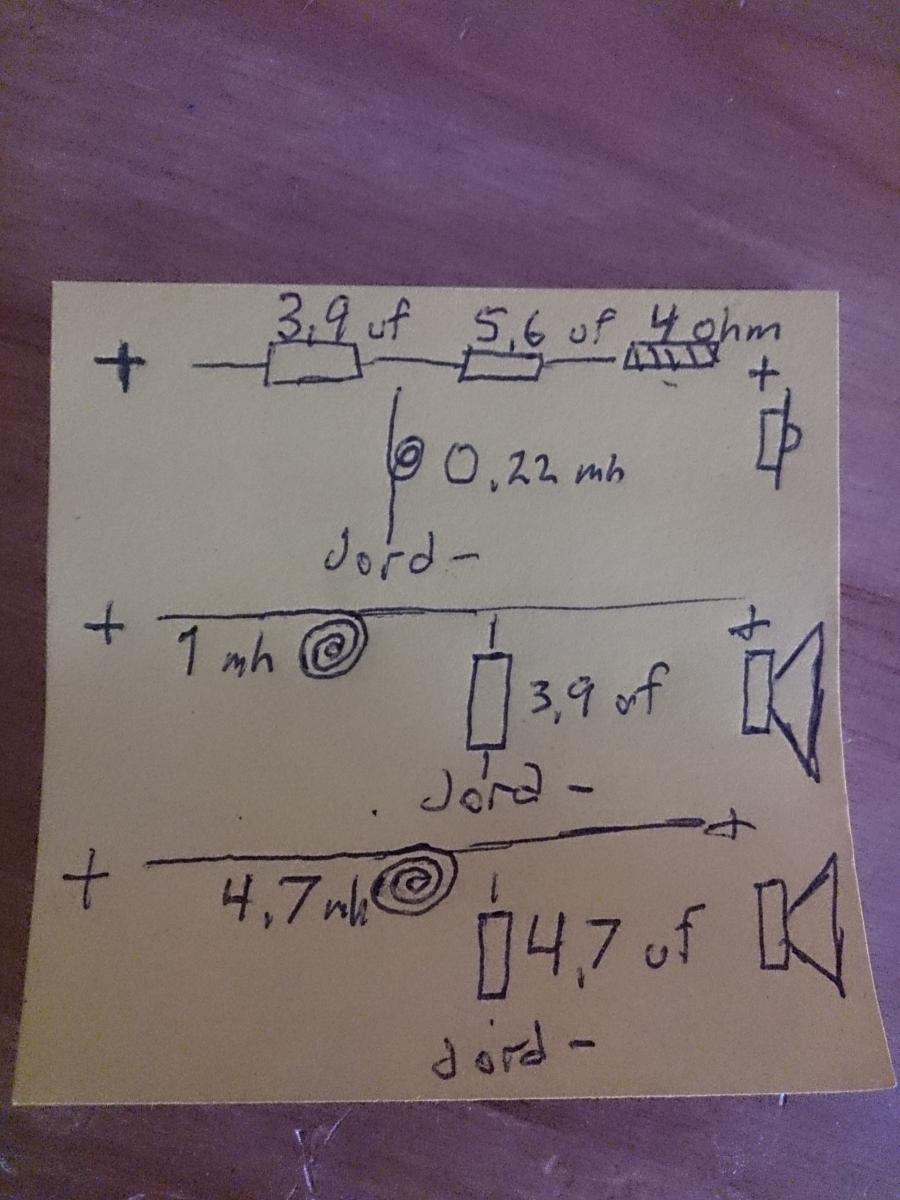 3,9 uf 5,6 uf 4 ohm
+ +
0,22 mh
Jord -
+ +
1 mh
3,9 uf
Jord -
+ +
4,7 mh
4,7 uf
Jord -